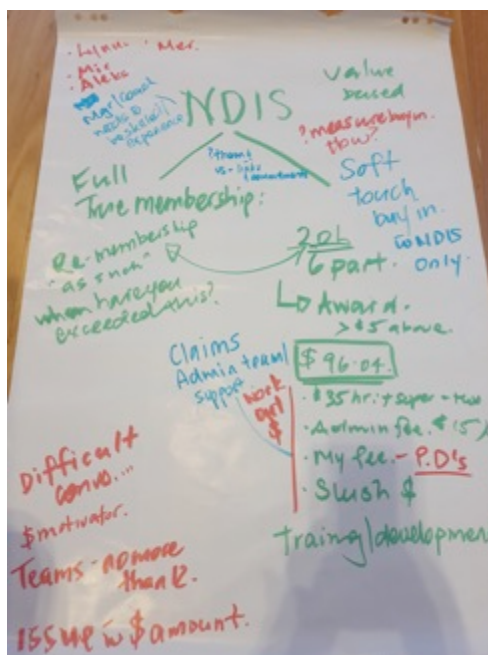 · Lynn · Mer.
· Mir
· Aleks
Mgr/coach
needs to
experience
NDIS
value
based
? measure buy in.
How?
Full
True membership:
Soft
touch
buy in.
to NDIS
only.
Re-membership
"as such"
when have you
exceeded this?
6 part.
Award.
> $5 above
$96.04.
Claims
Admin team/
support
work
out
$
· $35 hr + super
· Admin fee. $15
· My fee. - P.D's
· Slush $
training/development
Difficult
convo....
$ motivator.
Teams - no more
than 12.
issue is $ amount.